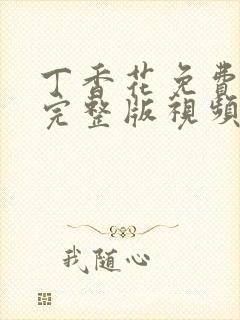 丁香花免費
完整版視頻
我随心